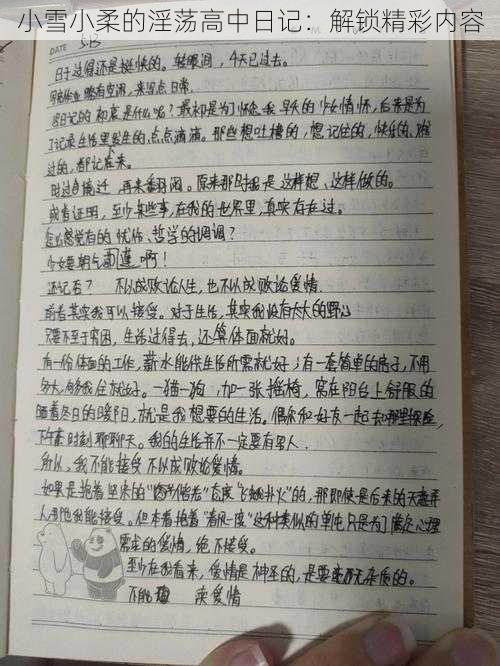 小雪小柔的淫荡高中日记：解锁精彩内容
DATE 5.8
日子过得还是挺快的。转眼间，4天已过去。
略有空闲，来写点日常。
写日记的初衷是什么呢？最初是为了怀念我早夭的少女情怀，后来是为
了记录生活里发生的点点滴滴。那些想吐槽的，想记住的，快乐的、难
过的，都记起来。
时过境迁，再来翻阅。原来那时是这样想、这样做的。
或者证明，至少某些事，在我的世界里，真实存在过。
怎么感觉有的忧伤、哲学的调调？
少女要朝气蓬啊！
还记否？ 不以成败论人生，也不以成败论爱情。
前者其实我可以接受。对于生活，其实我没有大大的野心
只要不至于穷困，生活过得去，还算体面就好。
有一份体面的工作，薪水能供生活所需就好；有一套简单的房子，不用
多大，够我住就好。一猫一狗，加一张摇椅，窝在阳台上舒服的
晒着冬日的暖阳，就是我想要的生活。偶尔和好友一起去哪里探险，
下午茶时刻聊聊天。我的生活并不一定要有男人。
所以，我不能接受不以成败论爱情。
如果是抱着坚来的态度"飞蛾扑火"的，那即使是后来的天
人我能接受。但本着抱着"春风一度"这种类似的单纯只是为了满足心理
需求的爱情，绝不接受。
至少在我看来，爱情是神圣的，是要无杂质的。
不能 谈爱情